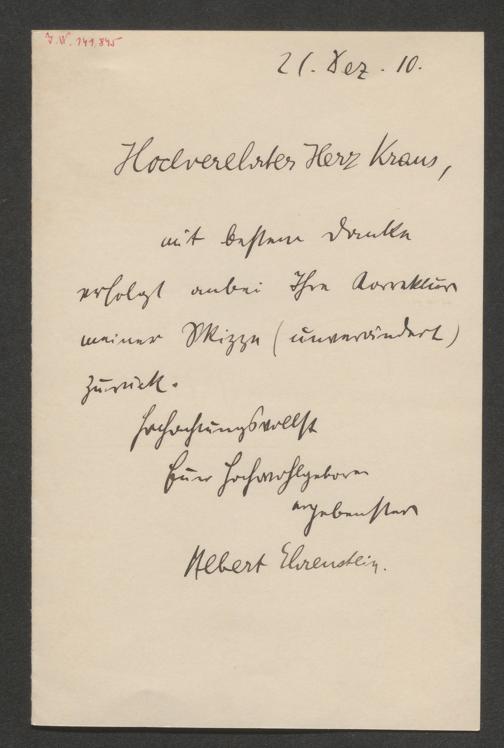 J.N. 141.845
21. Dez. 10.
Hochverehrter Herr Kraus,
mit bestem Danke
erfolgt anbei Ihre Korrektur
meiner Skizze (unverändert)
zurück.
Hochachtungsvollst
Euer Hochwohlgeboren
ergebenster
Albert Ehrenstein.